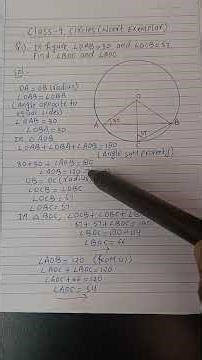 Class-9, Circles (Ncert Exemplar)
Q) In figure ∠OAB=30 and ∠OCB=57
Find ∠BOC and ∠AOC
Sol.
OA = OB (radius)
∠OAB = ∠OBA
(Angle opposite to
equal sides)
∠OAB = 30
∠OBA = 30
In △AOB
∠OAB+∠OBA+∠AOB=180
(Angle sum property)
30+30+∠AOB=180
∠AOB=120
OB = OC (radius)
∠OCB = ∠OBC
∠OCB = 57
∠OBC = 57
In △BOC, ∠OCB+∠OBC+∠B
57+57+∠BOC=180
∠BOC=180-114
∠BOC = 66
∠AOB=120 (from(i))
∠AOC+∠BOC=120
∠AOC+66=120
∠AOC=54
O
A
30
B
57
C